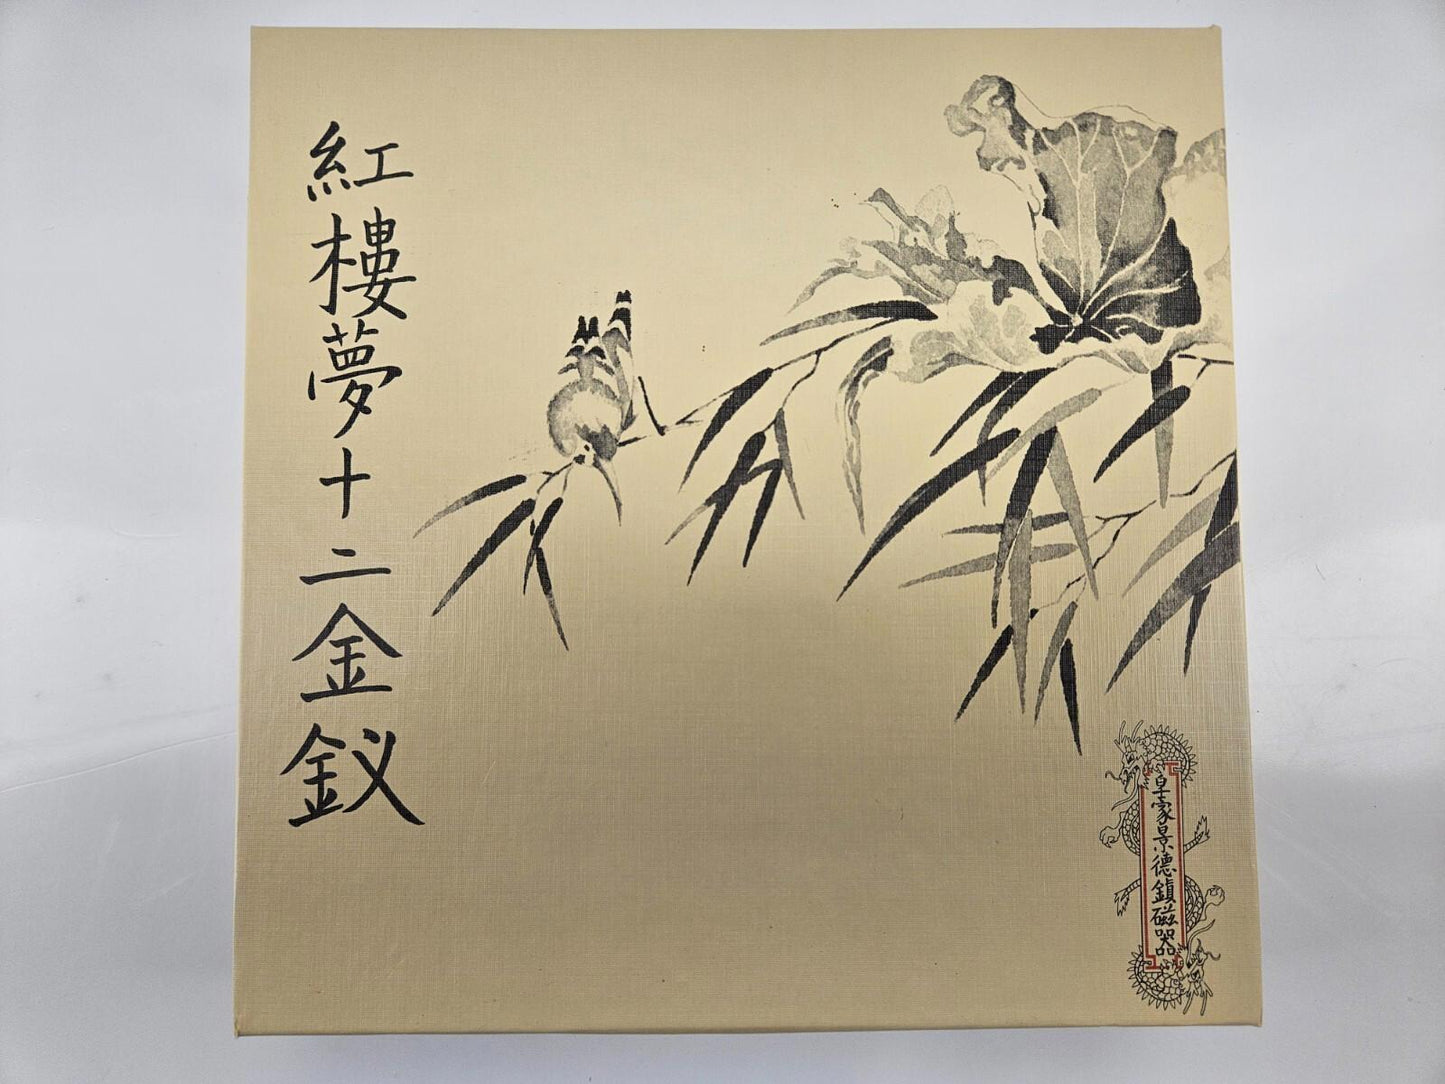 紅樓夢十二金釵
皇家景德鎮磁器